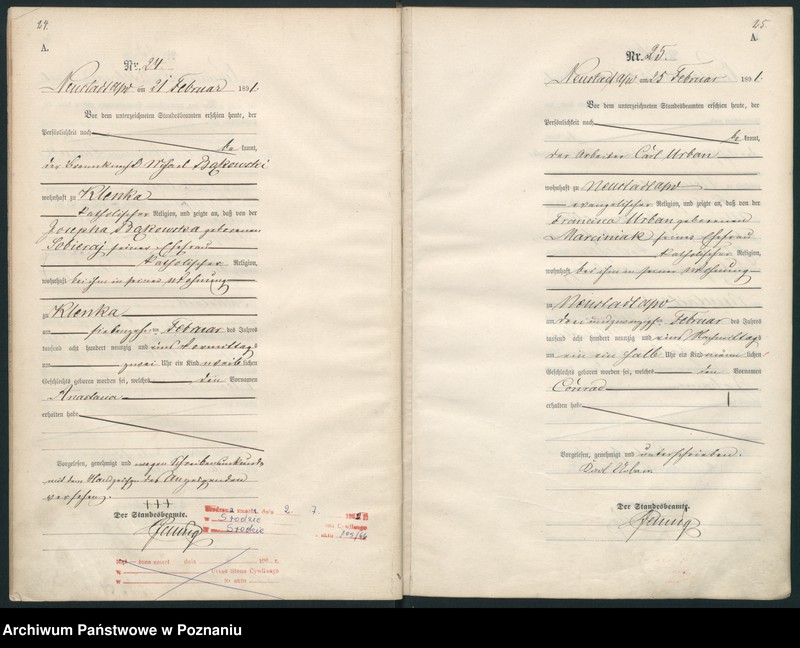 24.
A.
Nr. 24
Neustadt a/W am 21 Februar 1891.
Vor dem unterzeichneten Standesbeamten erschien heute, der
Persönlichkeit nach
be kannt,
der
wohnhaft zu Klenka
katholischer Religion, und zeigte an, daß von der
Josepha geborenen
Sobieraj, seiner Ehefrau
katholischer Religion,
wohnhaft bei ihm in seiner Wohnung
zu Klenka
am siebenzehnten Februar des Jahres
tausend acht hundert neunzig und eins Vormittags
um zwei Uhr ein Kind weiblichen
Geschlechts geboren worden sei, welches den Vornamen
Anastasia
erhalten habe
Vorgelesen, genehmigt und wegen Schreibensunkunde
mit dem Handzeichen des Anzeigenden
versehen.
+++
Der Standesbeamte.
2. 7.
Środzie
Środzie
Urząd Stanu Cywilnego
Nr aktu
25.
A
Nr. 25.
Neustadt a/W am 25 Februar 1891.
Vor dem unterzeichneten Standesbeamten erschien heute, der
Persönlichkeit nach
be kannt,
der Arbeiter Carl Urban
wohnhaft zu Neustadt a/W
evangelischer Religion, und zeigte an, daß von der
Francisca Urban geborenen
Marciniak, seiner Ehefrau
katholischer Religion,
wohnhaft bei ihm in seiner Wohnung
zu Neustadt a/W
am drei und zwanzigsten Februar des Jahres
tausend acht hundert neunzig und eins Nachmittags
um ein ein halb Uhr ein Kind männlichen
Geschlechts geboren worden sei, welches den Vornamen
Conrad
erhalten habe
Vorgelesen, genehmigt und unterschrieben.
Carl Urban
Der Standesbeamte.
Archiwum Państwowe w Poznaniu